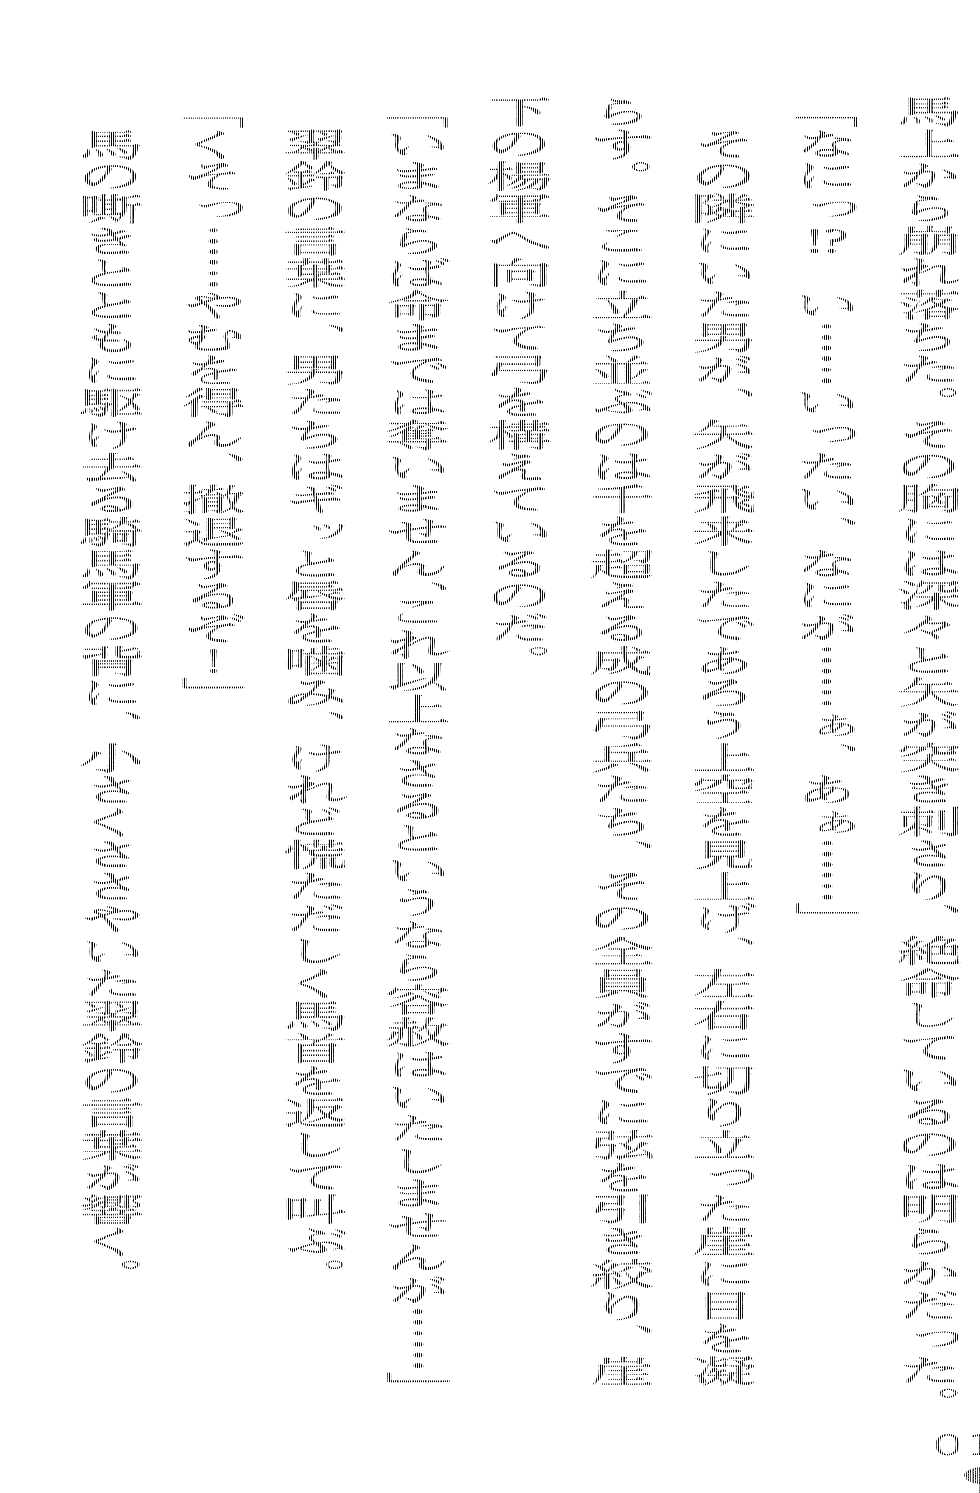 馬上から崩れ落ちた。その胸には深々と矢が突き刺さり、絶命しているのは明らかだった。
「なにっ!? い……いったい、なにが……ぁ、あぁ……」
その隣にいた男が、矢が飛来したであろう上空を見上げ、左右に切り立った崖に目を凝
らす。そこに立ち並ぶのは千を超える成の弓兵たち、その全員がすでに弦を引き絞り、崖
下の楊軍へ向けて弓を構えているのだ。
「いまならば命までは奪いません、これ以上なさるというなら容赦はいたしませんが……」
翠鈴の言葉に、男たちはギッと唇を噛み、けれど慌ただしく馬首を返して叫ぶ。
「くそっ……やむを得ん、撤退するぞ！」
馬の嘶きとともに駆け去る騎馬軍の背に、小さくささやいた翠鈴の言葉が響く。
01